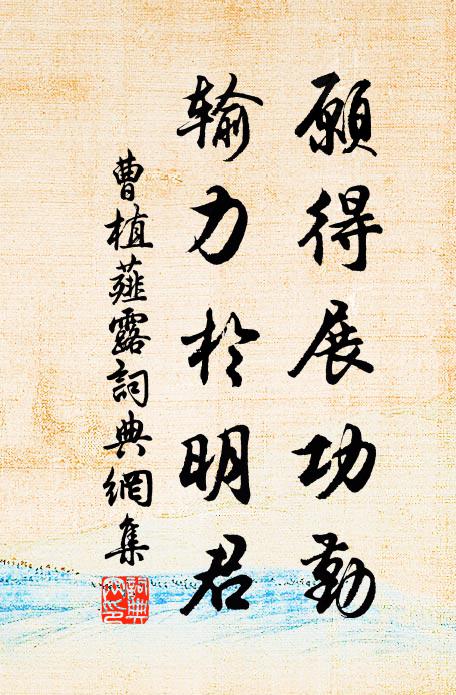 願得展功勤
输力於明君
曹植薤露詞典網集